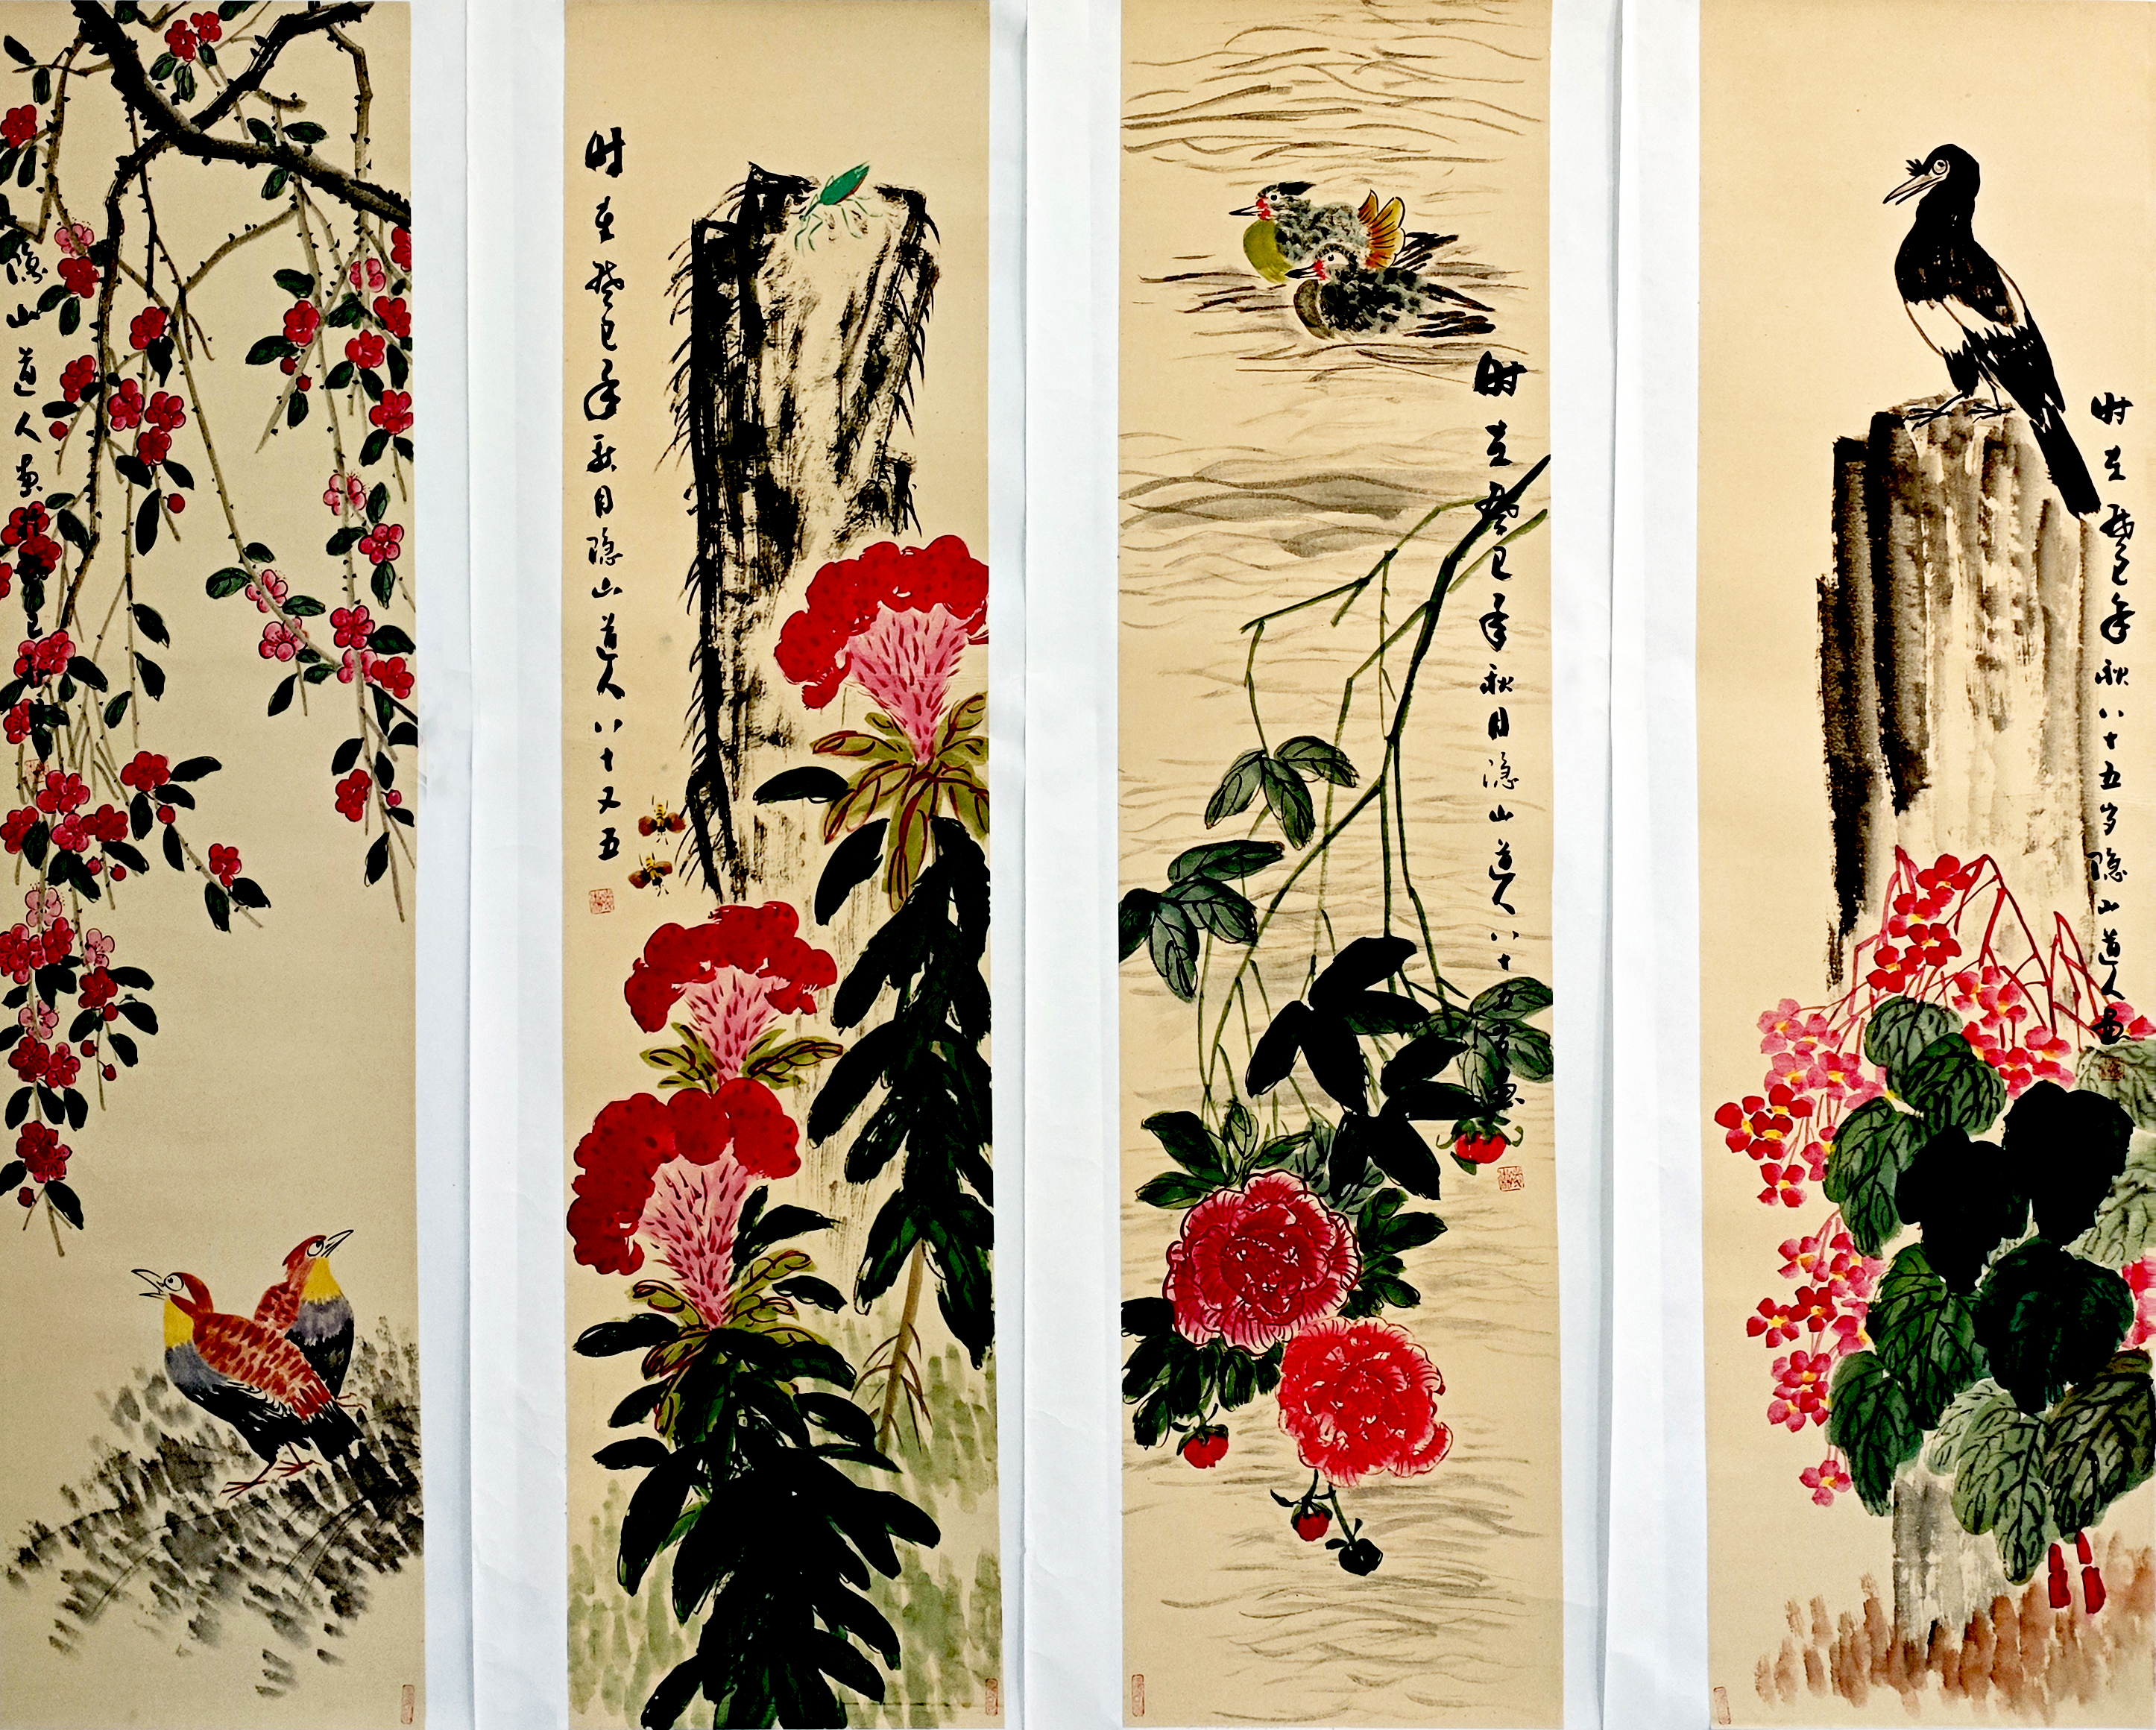 隐山道人画
时在癸巳年秋月隐山道人八十又五
时在癸巳年秋月隐山道人八十五岁画
时在癸巳年秋八十五岁隐山道人画